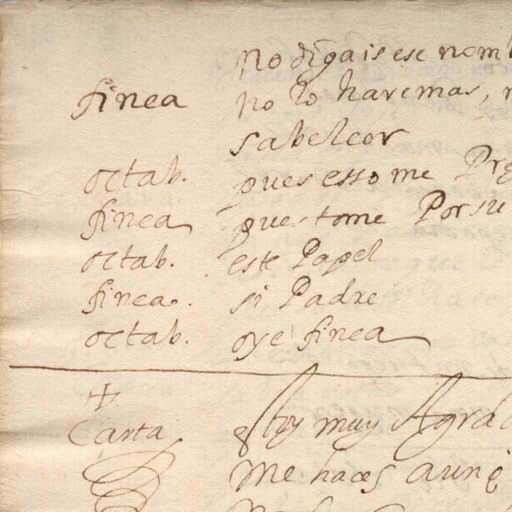 no digais ese nomb
finea no lo haremas,
sabeleer
octab. pues esto me
finea puestome Porsu
octab. este Papel
finea. si Padre
octab. oye finea
Carta Estoy muy Agrad
Me haces aunq